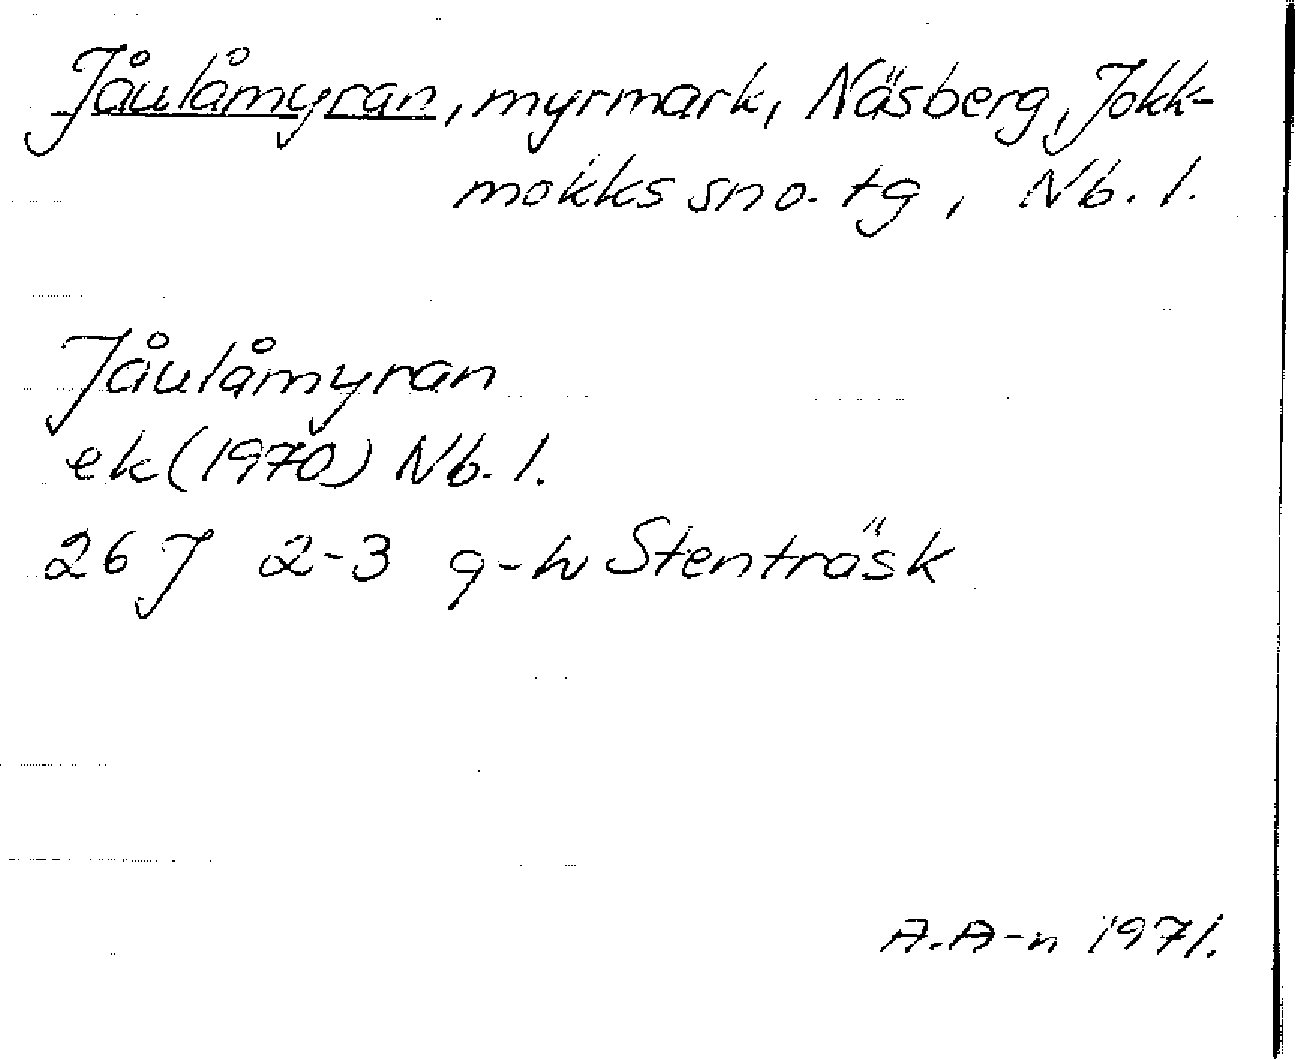 Jåulåmyran, myrmark, Näsberg, Jokk-
mokks sn o. tg, Nb. l.
Jåulåmyran
ek (1970) Nb. l.
26 J 2-3 g-h Stenträsk
A.A-n 1971.